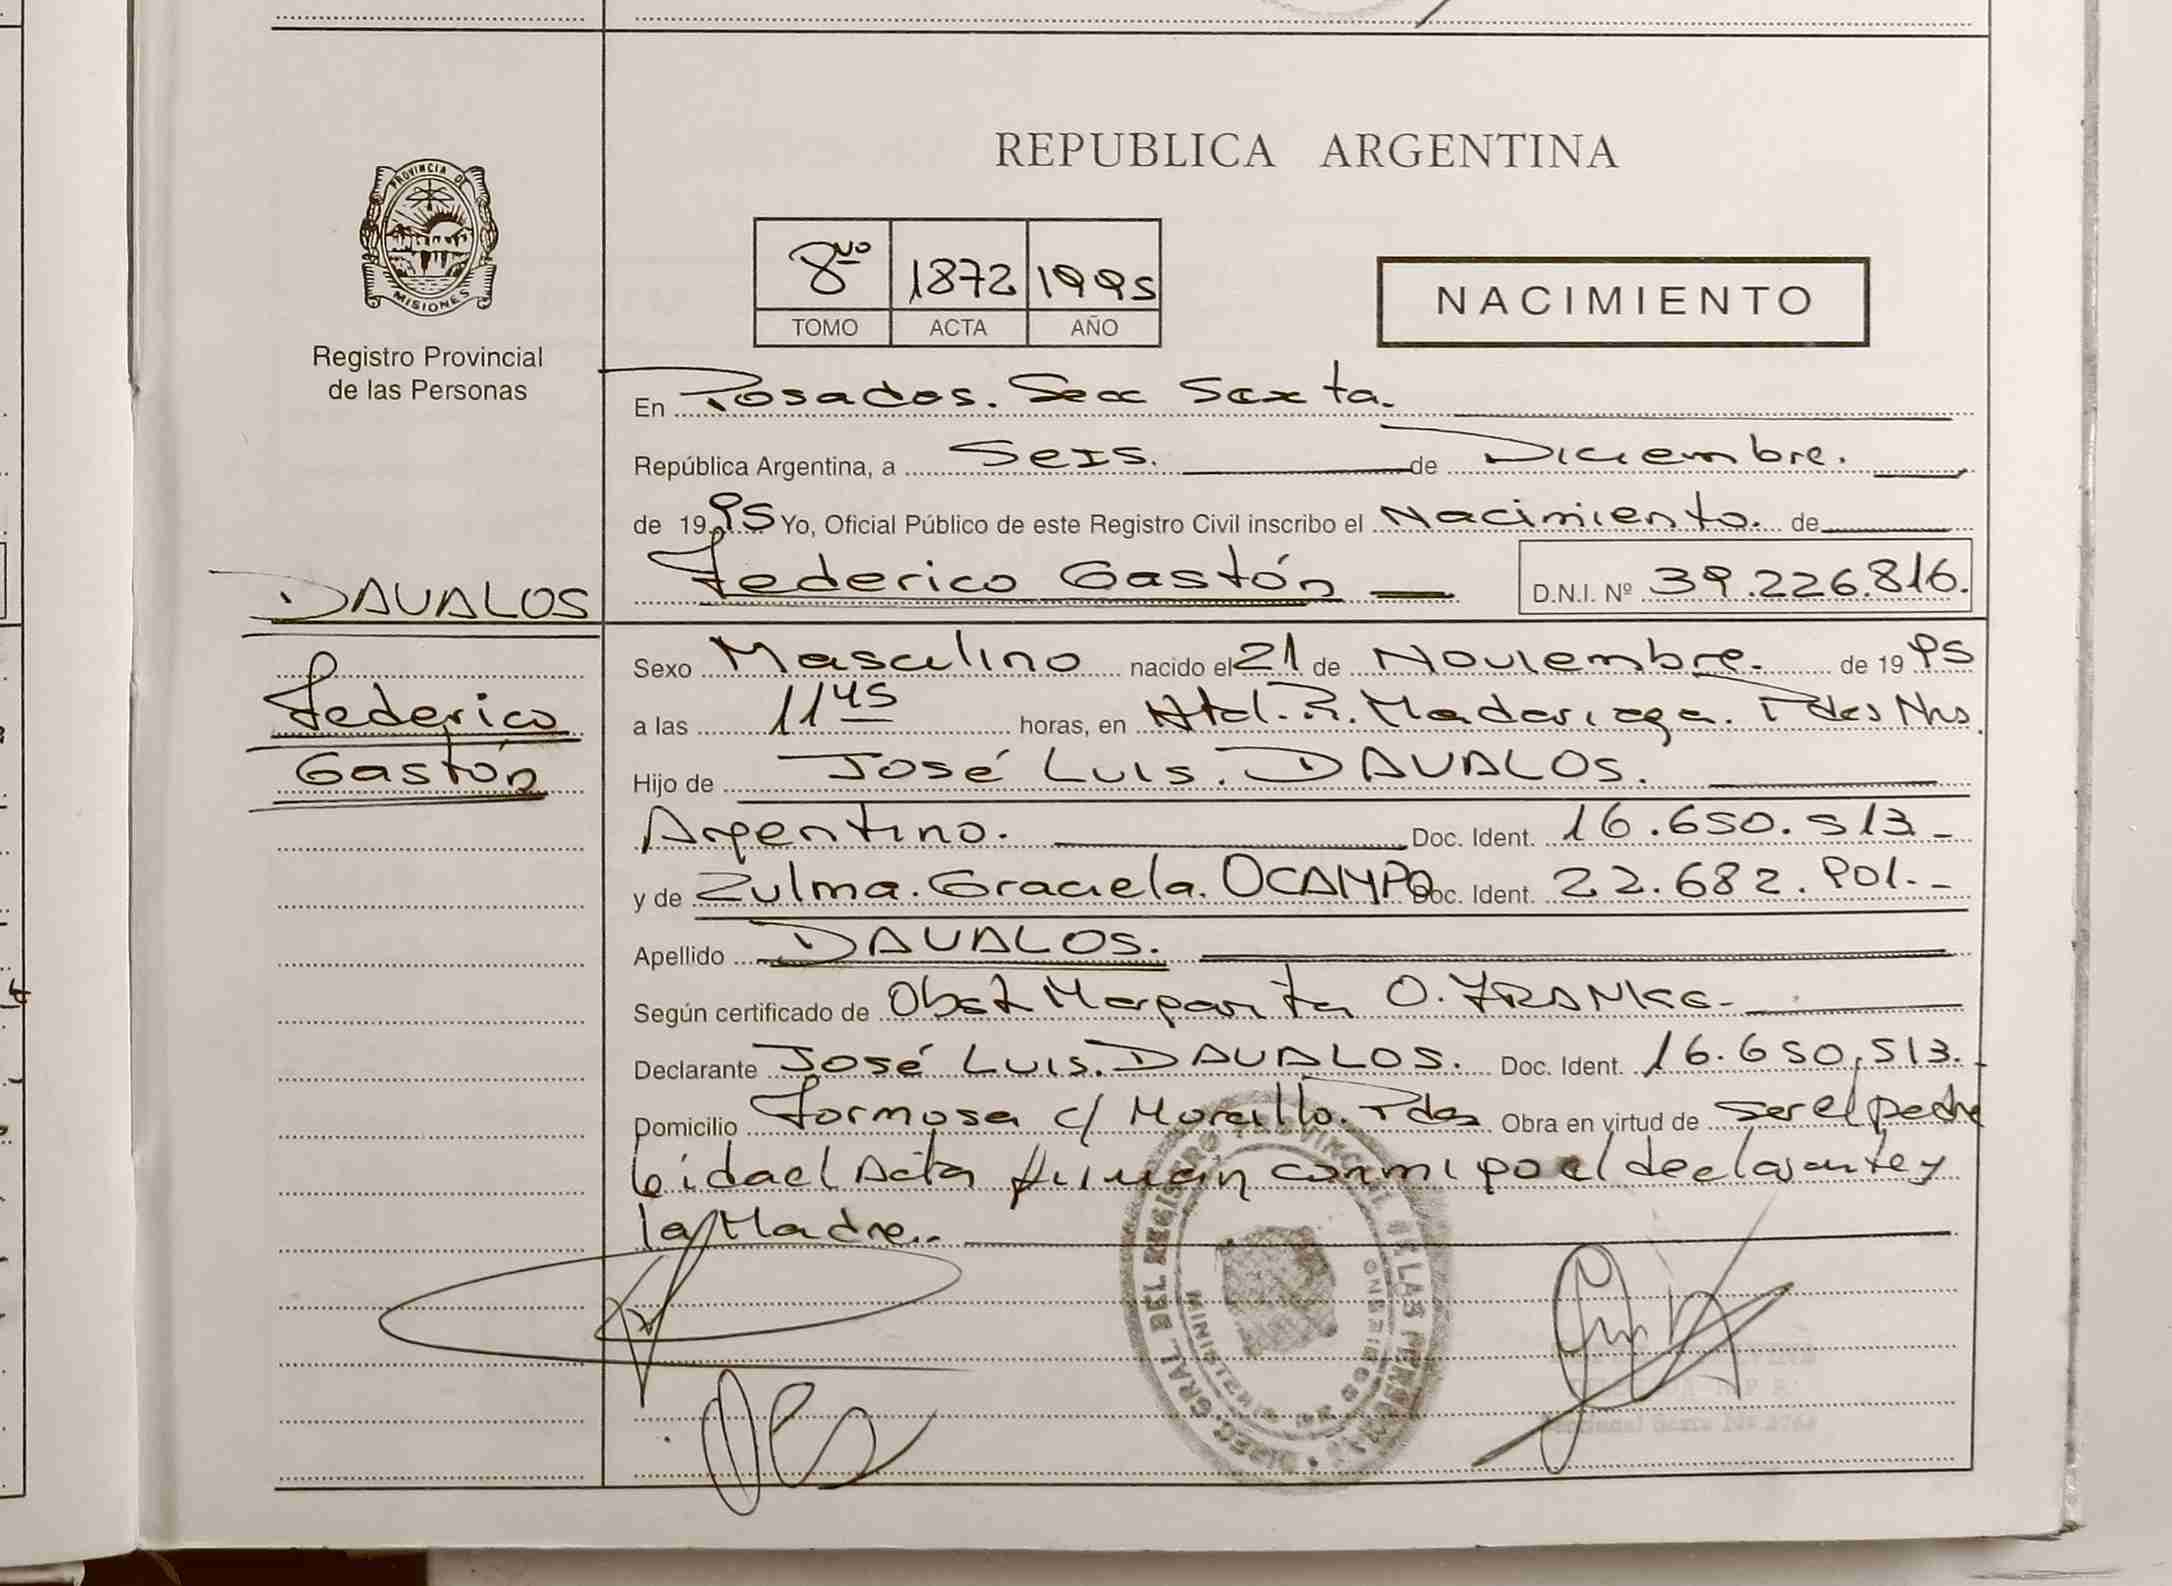 REPUBLICA ARGENTINA
PROVINCIA DE
MISIONES
Registro Provincial
de las Personas
8vo 1872 1995
TOMO ACTA AÑO
NACIMIENTO
En Posadas. Secc Sexta.
República Argentina, a Seis. de Diciembre.
de 1995 Yo, Oficial Público de este Registro Civil inscribo el Nacimiento. de
Federico Gastón D.N.I. Nº 39.226.816.
DAVALOS
Federico
Gastón
Sexo Masculino nacido el 21 de Noviembre. de 1995
a las 11 45 horas, en R. Madariaga. Pdas Mns
Hijo de José Luis. DAVALOS.
Argentino. Doc. Ident. 16.650.513_
y de Zulma. Graciela. OCAMPO Doc. Ident. 22.682.901._
Apellido DAVALOS.
Según certificado de Obst Margarita O. FRANKE.
Declarante José Luis. DAVALOS. Doc. Ident. 16.650.513.
Domicilio Formosa c/ Morcillo. Pdas Obra en virtud de ser el padre
leida el Acta firman conmigo el declarante y
la Madre..